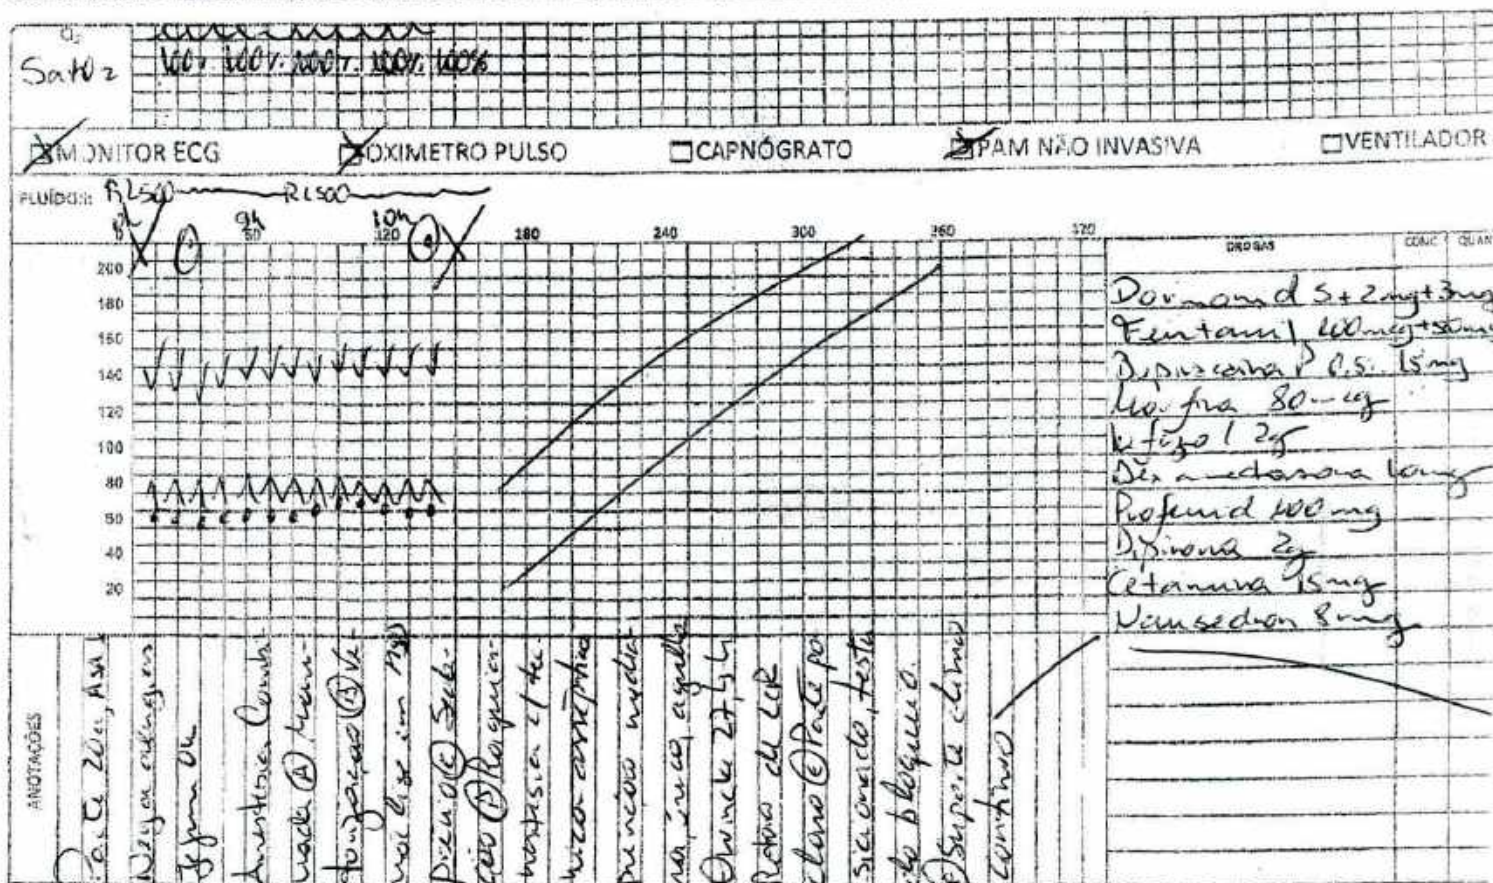 O₂
SatO2 100% 100% 100% 100% 100%
MONITOR ECG OXIMETRO PULSO CAPNÓGRATO PAM NÃO INVASIVA VENTILADOR
FLUÍDOS: RL500 RL500
9h 10h
0 60 120 180 240 300 360
DROGAS CONC QUAN
200
180
160
140
120
100
80
60
40
20
Dormonid 5+2mg+3mg
Fentanil 100mcg+50mcg
Bupivacaina P 0,5% 15mg
Morfina 80mcg
Kefazol 2g
Dexametasona 10mg
Profenid 100mg
Dipirona 2g
Cetamina 15mg
Nausedron 8mg
ANOTAÇÕES
Pacte 20a, ASA I
Nega alergias
Jejum Ok
Anestesia Combi-
nada (A) Moni-
torização (B) Ve-
nóclise em
(C) Seda-
ção (D) Raquia-
nestesia c/ téc-
nica asséptica
punção media-
na, única, agulha
Quincke 27, L
Retorno de LCR
claro (E) Pacte po-
sicionado, testa-
do bloqueio.
(F) Suporte clínico
contínuo